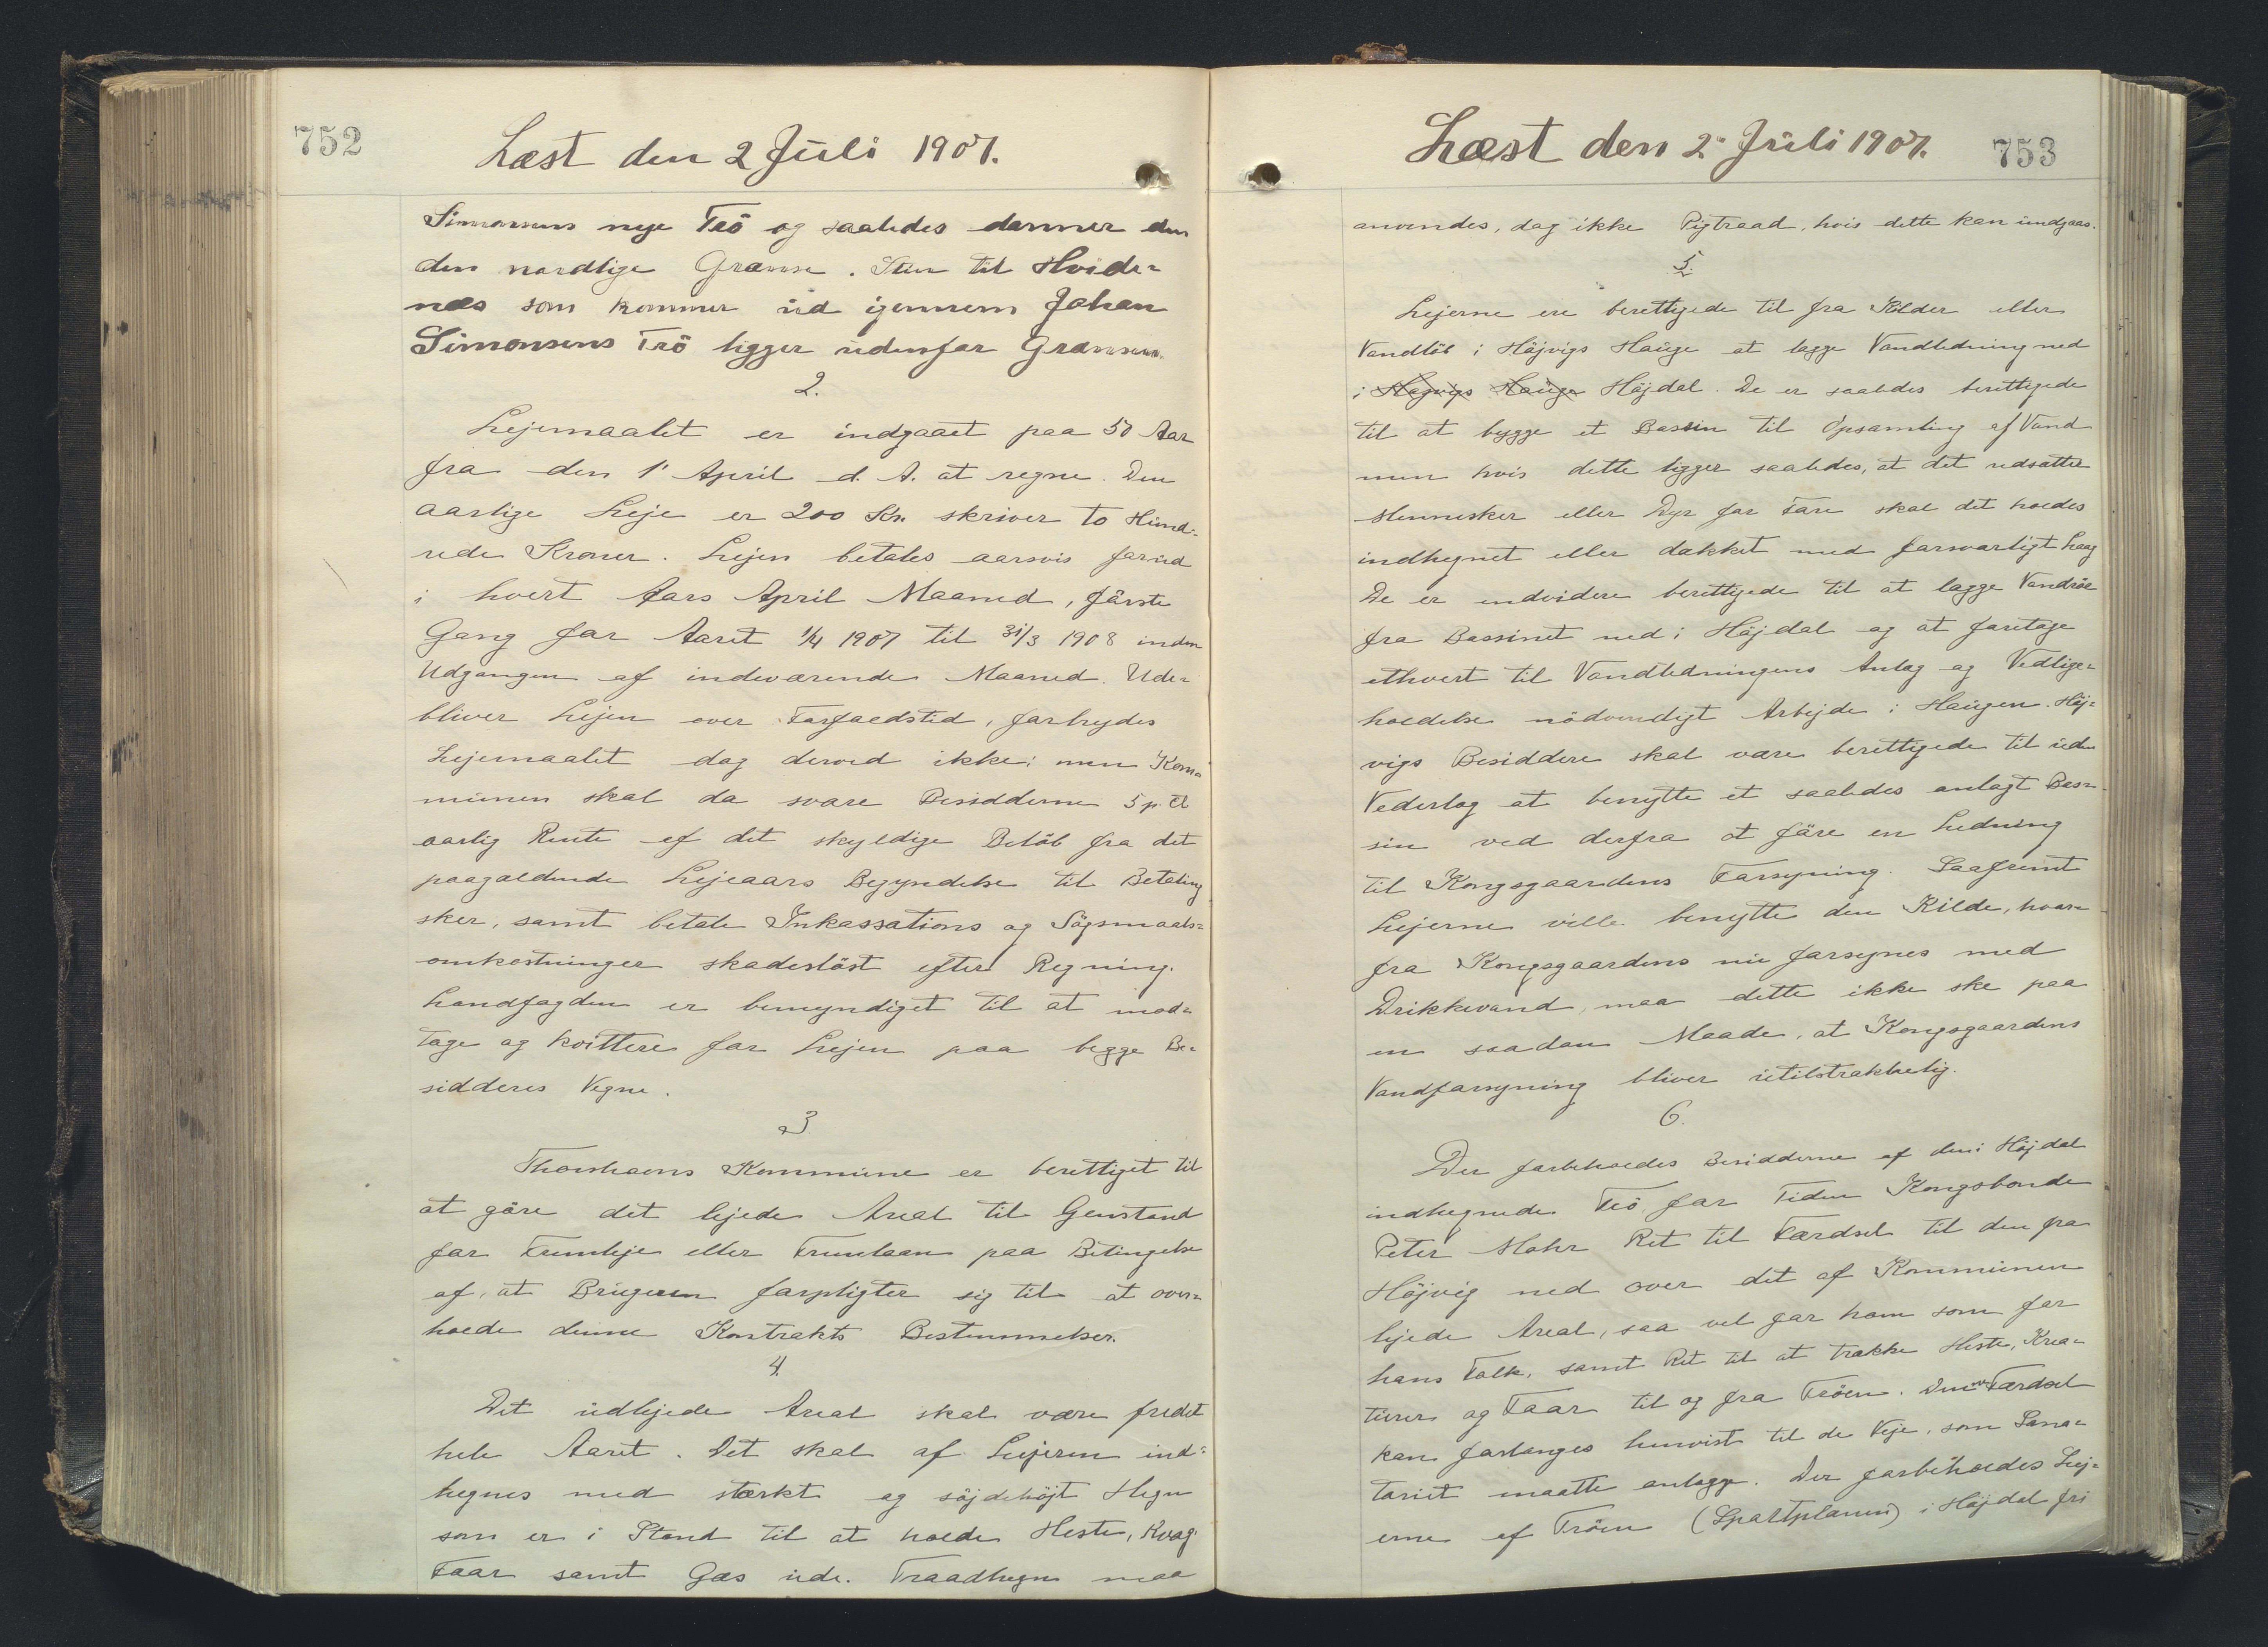 752
Læst den 2 Juli 1907.
Simonsens nye Trö og saaledes danner den
den nordlige Grænse. Stien til Hvide-
næs som kommer ud igennem Johan
Simonsens Trö ligger udenfor Grænsen.
2.
Lejemaalet er indgaaet paa 50 Aar
fra den 1' April d. A. at regne. Den
aarlige Leje er 200 Kr. skriver to Hund-
rede Kroner. Lejen betales aarsvis forud
i hvert Aars April Maaned, första
Gang for Aaret 1/4 1907 til 31/3 1908 inden
Udgangen af indeværende Maaned. Ude-
bliver Lejen over Forfaldstid, forbrydes
Lejemaalet dog derved ikke; men Kom-
munen skal da svare Besidderne 5 p. Ct
aarlig Rente af det skyldige Belöb fra det
paagældende Lejeaars Begyndelse til Betaling
sker, samt betale Inkassations og Sögsmaals-
omkostninger skadeslöst efter Regning.
Landfogden er bemyndiget til at mod-
tage og kvittere for Lejen paa begge Be-
sidderes Vegne.
3
Thorshavns Kommune er berettiget til
at göre det lejede Areal til Genstand
for Fremleje eller Fremlaan paa Betingelse
af, at Brugeren forpligter sig til at over-
holde denne Kontrakts Bestemmelser.
4.
Det udlejede Areal skal være fredet
hele Aaret. Det skal af Lejeren ind-
hegnes med stærkt og söjdehöjt Hegn
som er i Stand til at holde Heste, Kvæg
Faar samt Gæs ude. Traadhegn maa
Læst den 2' Juli 1907.
753
anvendes, dog ikke Pigtraad, hvis dette kan undgaas.
5.
Lejerne ere berettigede til fra Kilder eller
Vandlöb i Höjvigs Hauge at lægge Vandledning ned
i Höjvigs Hauge Höjdal. De er saaledes berettigede
til at bygge et Bassin til Opsamling af Vand
men hvis dette ligger saaledes, at det udsætter
Mennesker eller Dyr for Fare skal det holdes
indhegnet eller dækket med forsvarligt Laag
De er endvidere berettigede til at lægge Vandrör
fra Bassinet ned i Höjdal og at foretage
ethvert til Vandledningens Anlæg og Vedlige-
holdelse nödvendigt Arbejde i Haugen. Höj-
vigs Besiddere skal være berettigede til uden
Vederlag at benytte et saaledes anlagt Bas-
sin ved derfra at före en Ledning
til Kongsgaardens Forsyning. Saafremt
Lejerne ville benytte den Kilde, hvor-
fra Kongsgaardens nu forsynes med
Drikkevand, maa dette ikke ske paa
en saadan Maade, at Kongsgaardens
Vandforsyning bliver utilstrækkelig.
6.
Der forbeholdes Besidderne af den i Höjdal
indhegnede Trö, for Tiden Kongsbonde
Peter Mohr Ret til Færdsel til den fra
Höjvig ned over det af Kommunen
lejede Areal, saa vel for ham som for
hans Folk, samt Ret til at trække Heste, Krea-
turer og Faar til og fra Tröen. Denne Færdsel
kan forlanges henvist til de Veje, som Sana-
toriet maatte anlægge. Der forbeholdes Lej-
erne af Tröen (Spaltplanen) i Höjdal fri